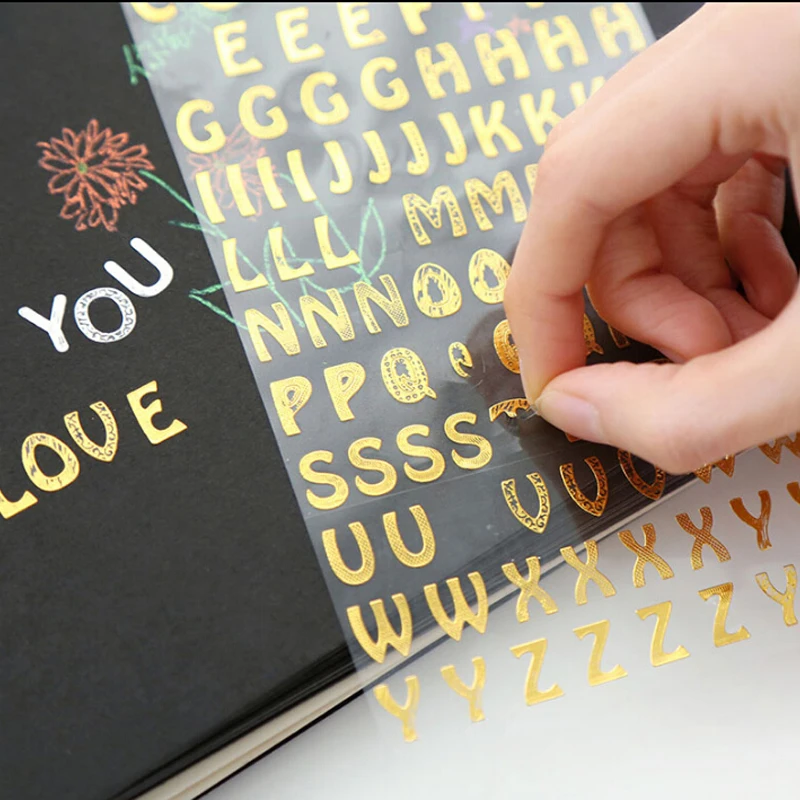 YOU
LOVE
E E E F
G G G G H H H H
I I I I J J J J K K K
L L L M M M
N N N O O
P P Q
S S S S
U U V V V W W
W W X X X X Y
Y Y Z Z Z Z Y